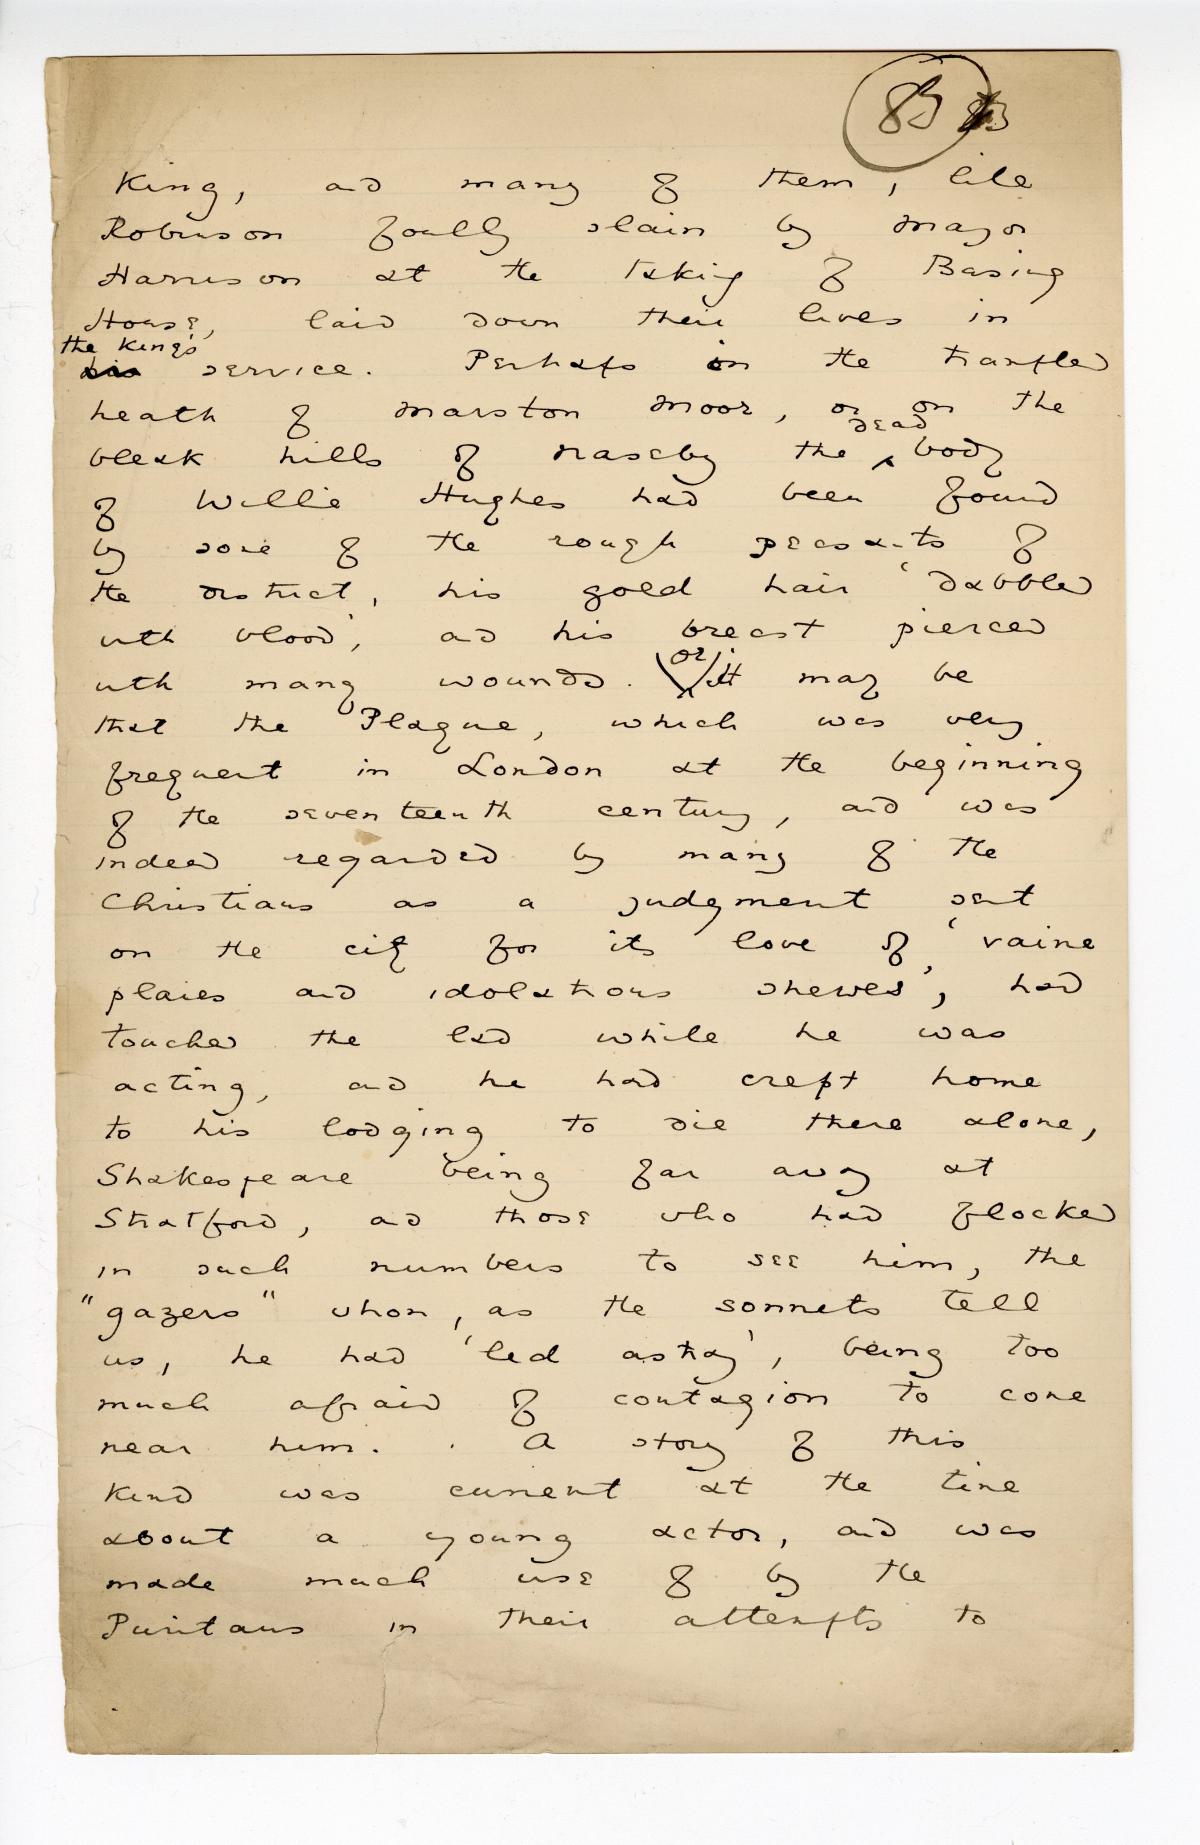 85
King, and many of them, like
Robinson foully slain by Major
Harrison at the taking of Basing
House, laid down their lives in
the King's
his service. Perhaps on the trampled
heath of Marston Moor, or on the
dead
bleak hills of Naseby the body
of Willie Hughes had been found
by some of the rough peasants of
the district, his gold hair 'dabbled
with blood', and his breast pierced
with many wounds. Or it may be
that the Plague, which was very
frequent in London at the beginning
of the seventeenth century, and was
indeed regarded by many of the
Christians as a judgment sent
on the city for its love of 'vaine
plaies and idolatrous shewes', had
touched the lad while he was
acting, and he had crept home
to his lodging to die there alone,
Shakespeare being far away at
Stratford, and those who had flocked
in such numbers to see him, the
"gazers" whom, as the sonnets tell
us, he had 'led astray', being too
much afraid of contagion to come
near him. . A story of this
kind was current at the time
about a young actor, and was
made much use of by the
Puritans in their attempts to